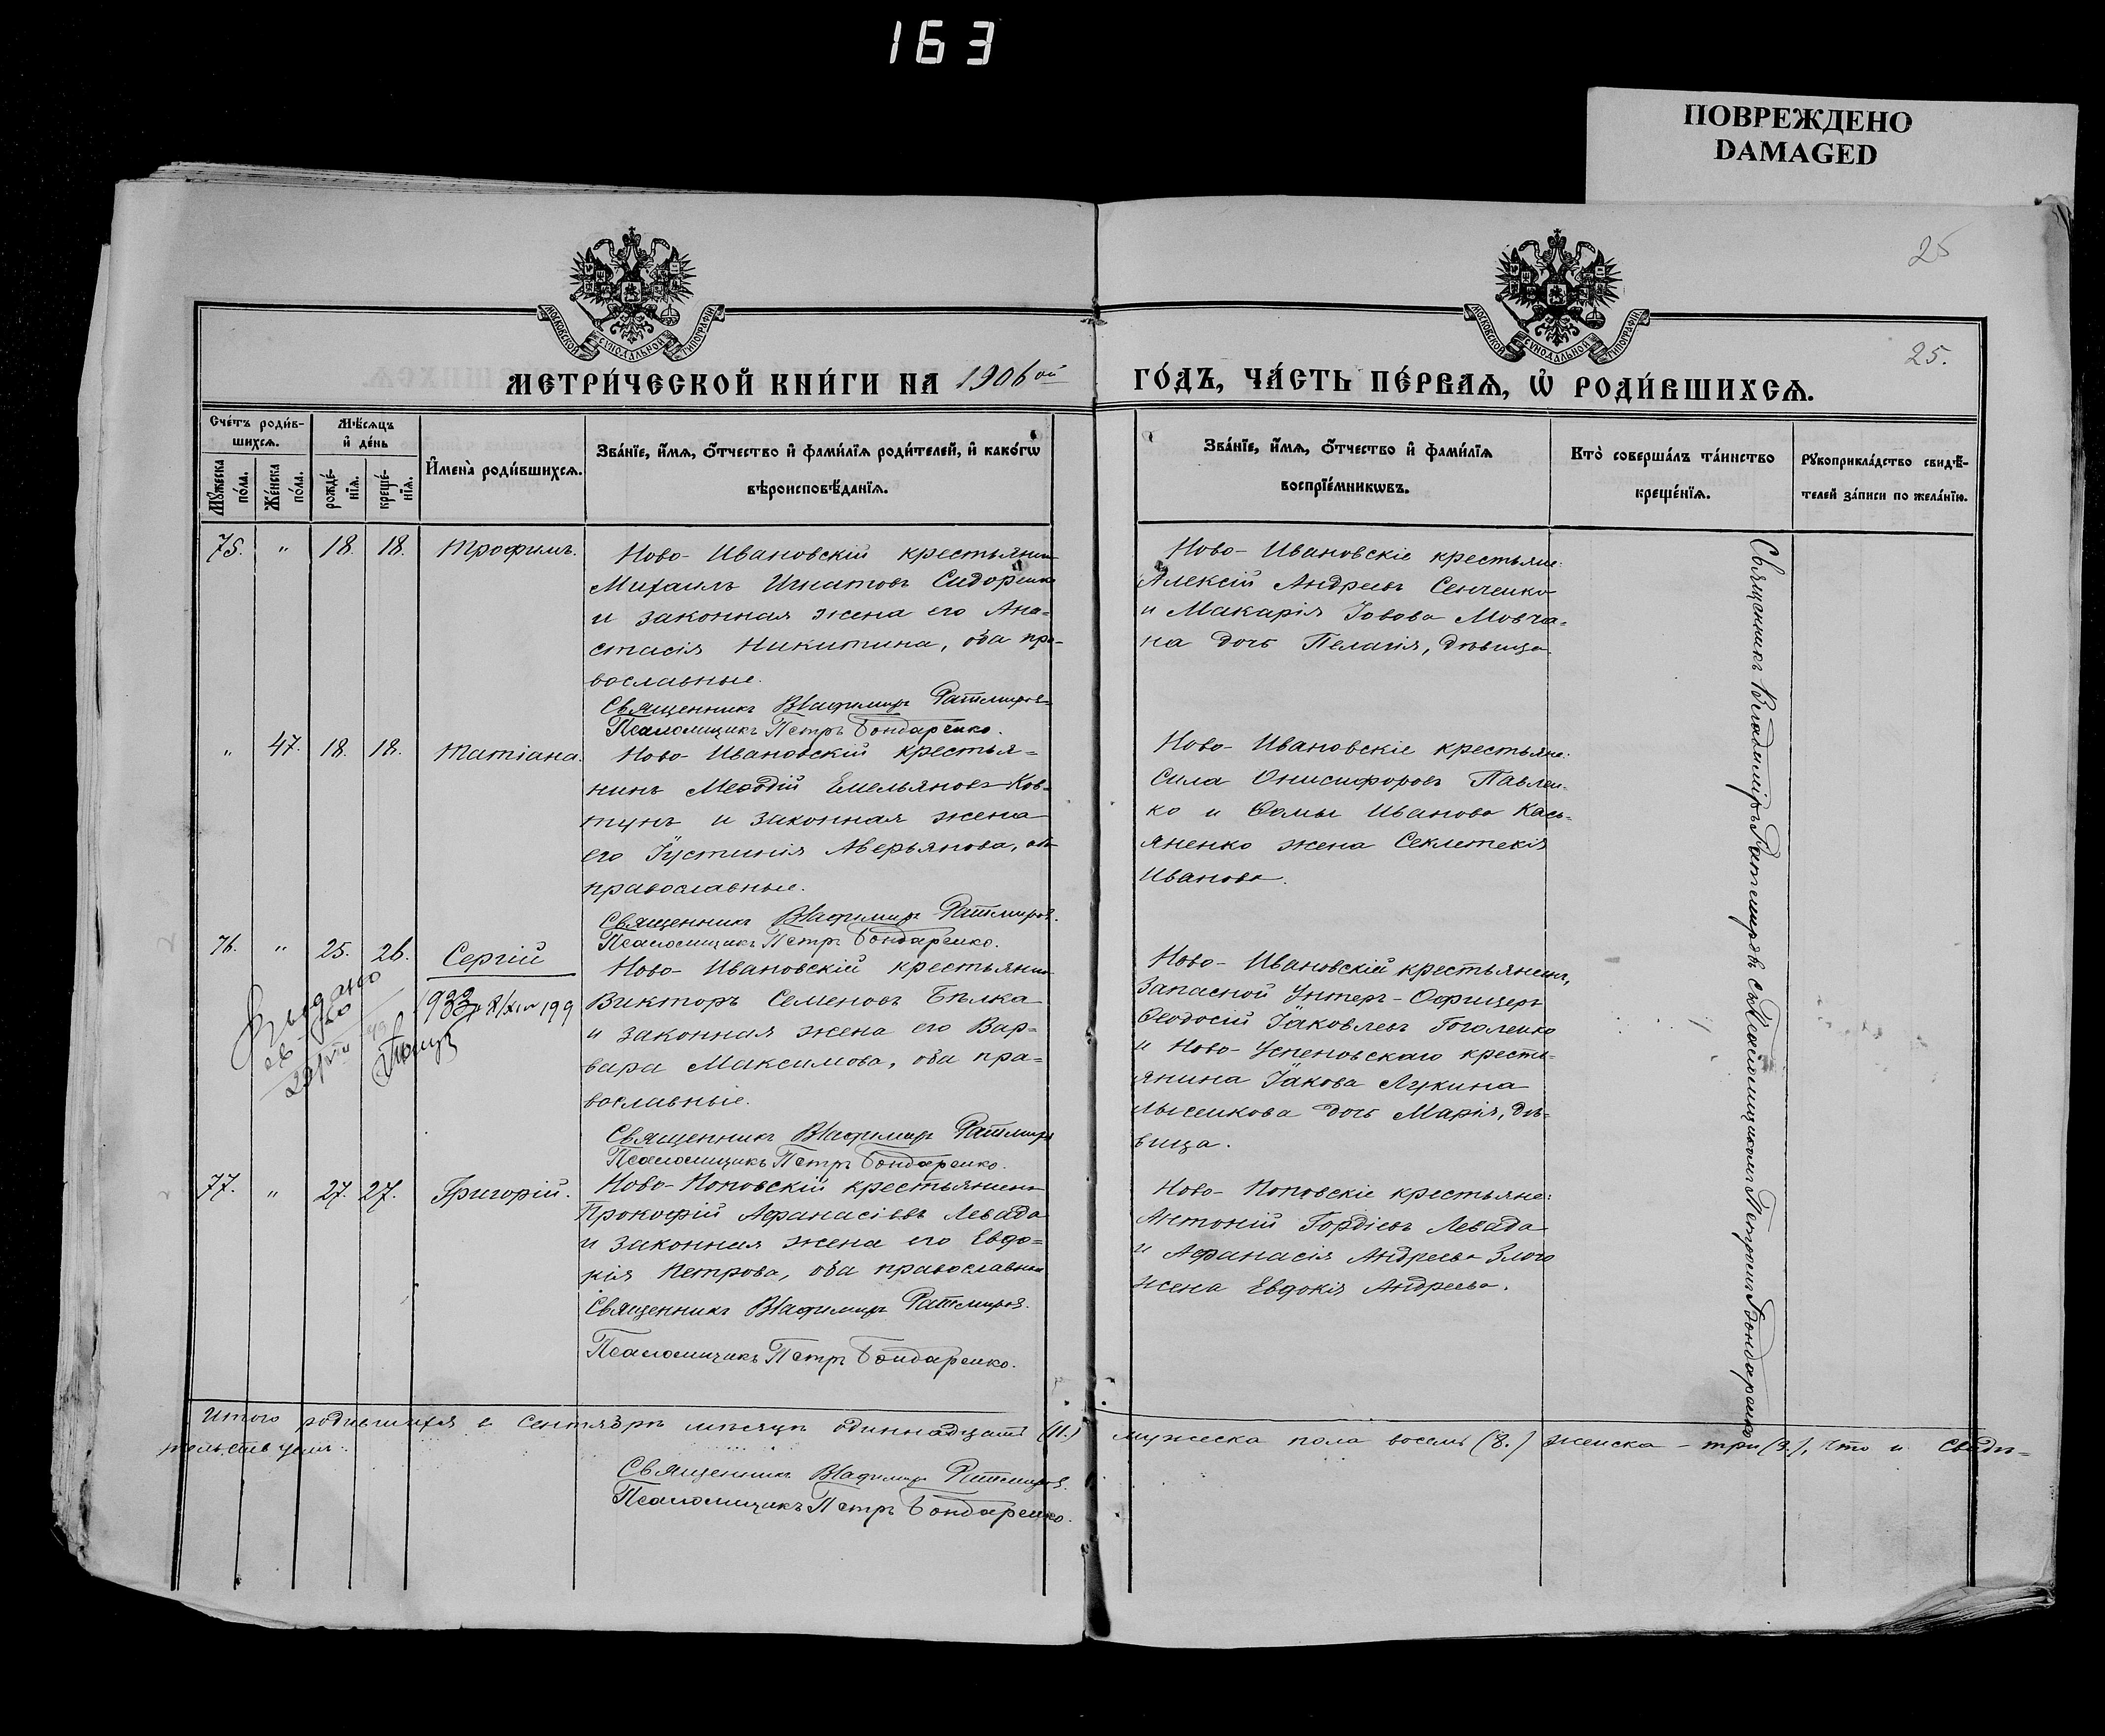 163
ПОВРЕЖДЕНО
DAMAGED
25
25.
МОСКОВСКОЙ СѴНОДАЛЬНОЙ ТИПОГРАФІИ
МОСКОВСКОЙ СѴНОДАЛЬНОЙ ТИПОГРАФІИ
МЕТРИ́ЧЕСКОЙ КНИ́ГИ НА 1906ой
ГО́ДЪ, ЧА́СТЬ ПЕ́РВАѦ, Ѡ РОДИ́ВШИХСѦ.
Сче́тъ роди́в-
шихсѧ.
Мѣ́сѧцъ
и де́нь
Мꙋ́жеска
по́ла.
Же́нска
по́ла.
рожде́-
нїѧ.
креще́-
нїѧ.
Имена̀ роди́вшихсѧ.
Зва́нїе, и́мѧ, о́тчество и фами́лїѧ роди́телей, и како́гѡ
вѣроисповѣ́данїѧ.
Зва́нїе, и́мѧ, о́тчество и фами́лїѧ
воспрїе́мникѡвъ.
Кто̀ соверша́лъ та́инство
креще́нїѧ.
Рꙋкоприкла́дство свидѣ́-
телей за́писи по жела́нїю.
75. " 18. 18. Трофимъ.
Ново-Ивановскій крестьянинъ
Михаилъ Игнатовъ Сидоренко
и законная жена его Ана-
стасія Никитина, оба пра-
вославные.
Священникъ Владимиръ Ратмировъ
Псаломщикъ Петръ Бондаренко.
Ново-Ивановскіе крестьяне:
Алексій Андреевъ Сенченко
и Макарія Іовова Мовча-
на дочь Пелагія, дѣвица
" 47. 18. 18. Татіана.
Ново-Ивановскій крестья-
нинъ Меѳодій Емельяновъ Ков-
тунъ и законная жена
его Іустинія Аверьянова, оба
православные.
Священникъ Владимиръ Ратмировъ.
Псаломщикъ Петръ Бондаренко.
Ново-Ивановскіе крестьяне:
Сила Онисифоровъ Павлен-
ко и Ѳомы Иванова Кась-
яненко жена Секлетекія
Иванова.
76. " 25. 26. Сергій
Выдано
Ново-Ивановскій крестьянинъ
Викторъ Семеновъ Бѣлка
и законная жена его Вар-
вара Максимова, оба пра-
вославные.
Священникъ Владимиръ Ратмировъ
Псаломщикъ Петръ Бондаренко.
Ново-Ивановскій крестьянинъ,
Запасной Унтеръ-Офицеръ
Ѳеодосій Іаковлевъ Гоголенко
и Ново-Успеновскаго кресть-
янина Іакова Лукина
Лысенкова дочь Марія, дѣ-
вица.
77. " 27. 27. Григорій.
Ново-Поповскій крестьянинъ
Прокофій Афанасіевъ Левада
и законная жена его Евдо-
кія Петрова, оба православные
Священникъ Владимиръ Ратмировъ.
Псаломщикъ Петръ Бондаренко.
Ново-Поповскіе крестьяне:
Антоній Гордіевъ Левада
и Афанасія Андреева Злого
жена Евдокія Андреева.
Священникъ Владиміръ Ратмировъ съ Псаломщикомъ Петромъ Бондаренко
Итого родившихся в Сентябрѣ мѣсяцѣ одиннадцать (11.) мужеска пола восемь (8.) женска - три (3.), что и свидѣ-
тельствуемъ:
Священникъ Владимиръ Ратмировъ.
Псаломщикъ Петръ Бондаренко.